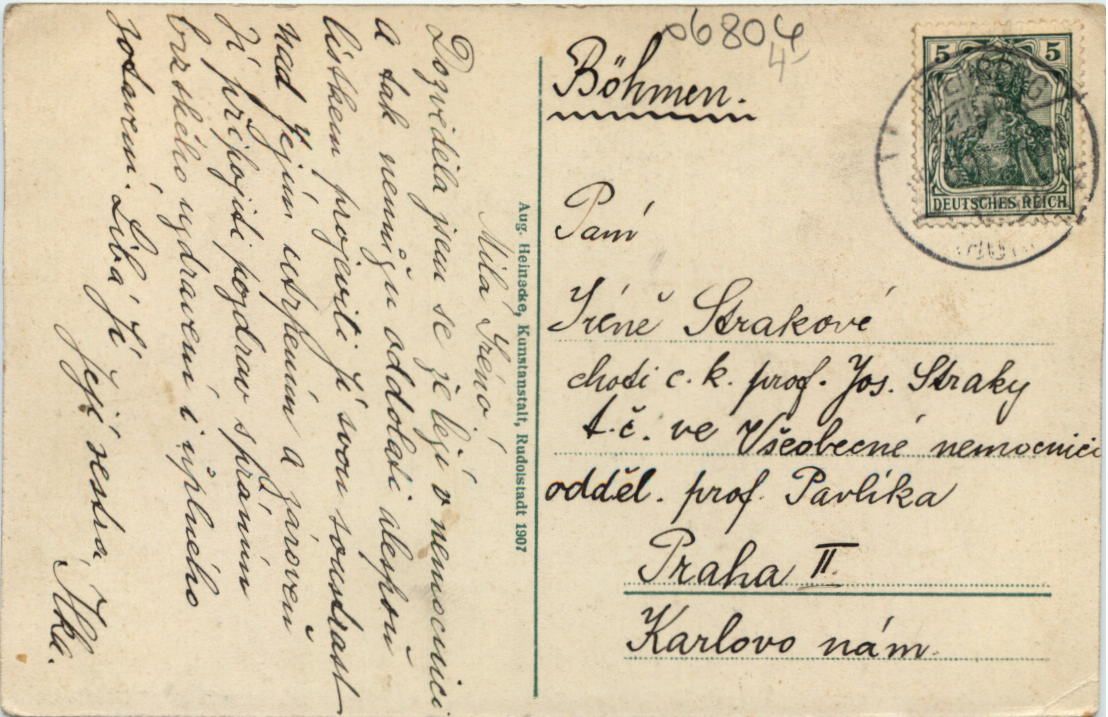 Milá Iréno!
Dozvěděla jsem se že leží v nemocnici
a tak nemůžu oddolati alespoň
lístkem projeviti Jí svou soustrast
nad Jejím utrpením a zároveň
Jí připojiti pozdrav s přáním
brzkého uzdravení i úplného
zotavení. Líbá Jí
Její sestra Ilka.
Aug. Heinacke, Kunstanstalt, Rudolstadt 1907
06804
4
Böhmen.
5 5
DEUTSCHES REICH
Paní
Iréně Strakové
choti c. k. prof. Jos. Straky
t. č. ve Všeobecné nemocnici
odděl. prof. Pavlíka
Praha II.
Karlovo nám.